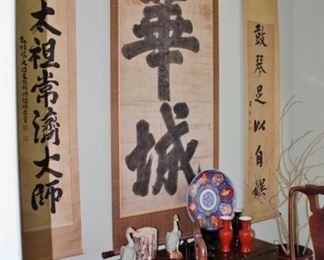 鼓琴足以自娛
華城
太祖常濟大師